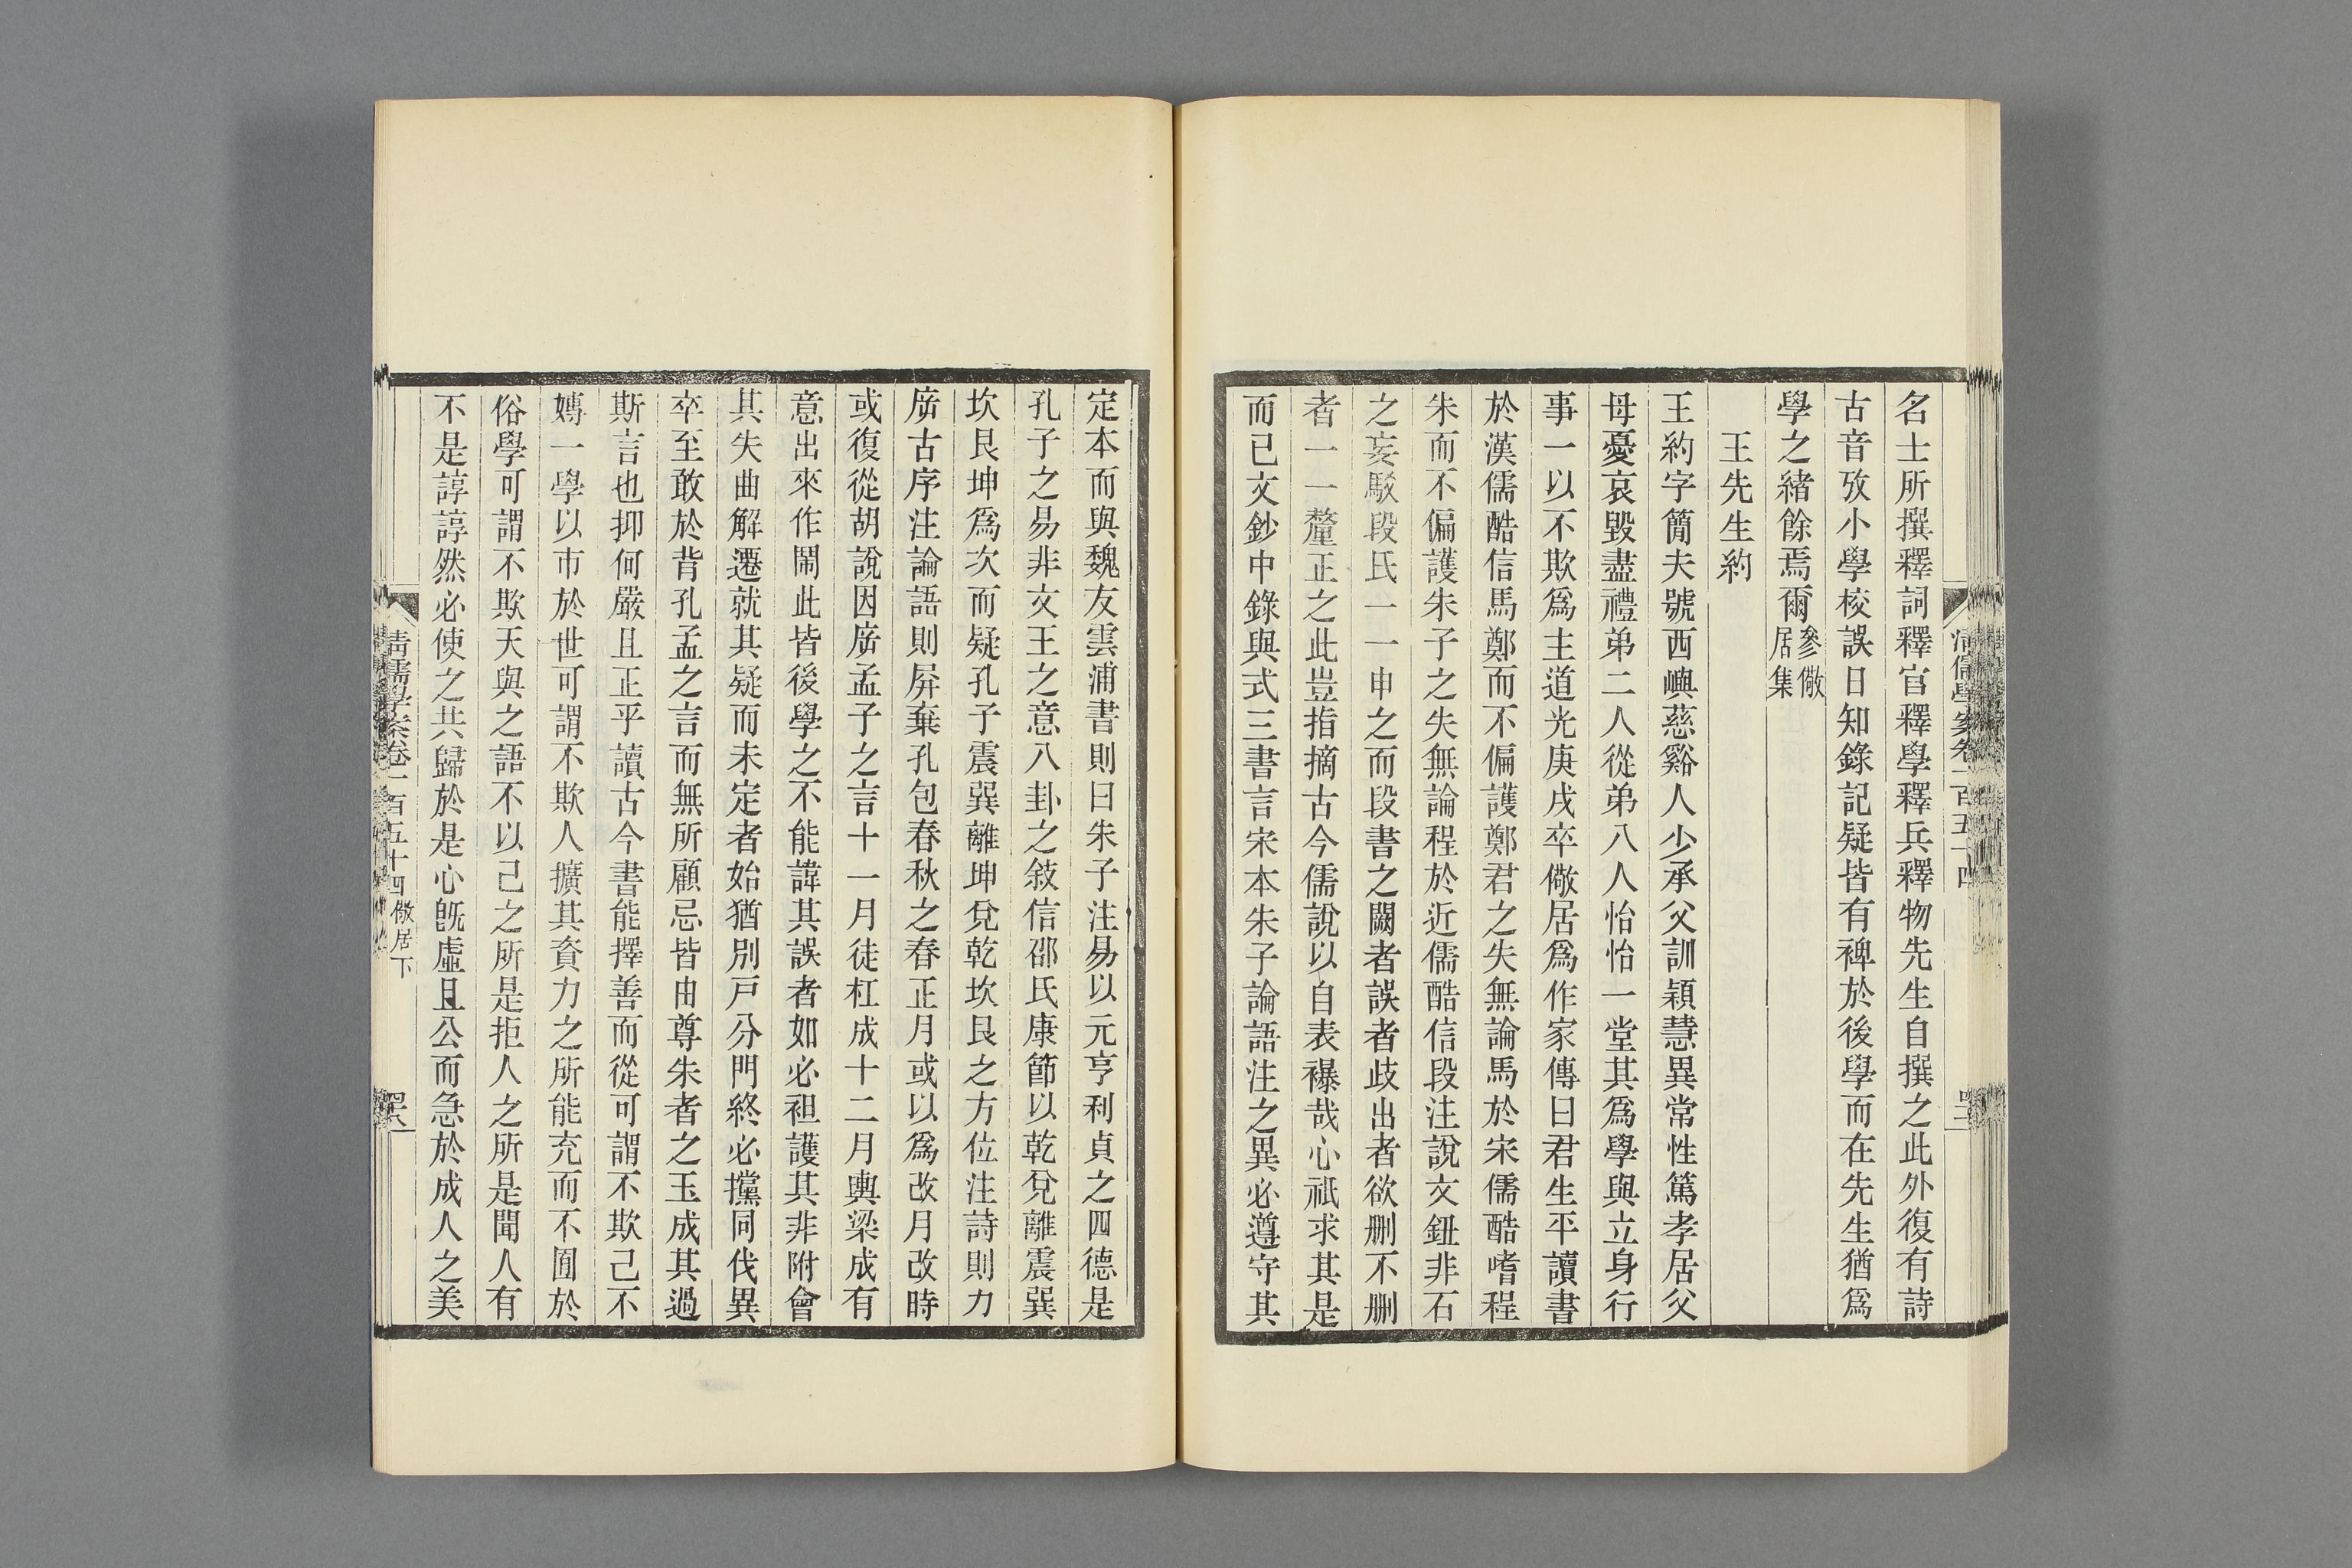 清儒學案卷一百五十四
名士所撰釋詞釋官釋學釋兵釋物先生自撰之此外復有詩
古音攷小學校誤日知錄記疑皆有裨於後學而在先生猶爲
學之緒餘焉爾參儆居集
王先生約
王約字簡夫號西嶼慈谿人少承父訓穎慧異常性篤孝居父
母憂哀毀盡禮弟二人從弟八人怡怡一堂其爲學與立身行
事一以不欺爲主道光庚戌卒儆居爲作家傳曰君生平讀書
於漢儒酷信馬鄭而不偏護鄭君之失無論馬於宋儒酷嗜程
朱而不偏護朱子之失無論程於近儒酷信段注說文鈕非石
之妄駁段氏一一申之而段書之闕者誤者歧出者欲刪不刪
者一一釐正之此豈指摘古今儒說以自表襮哉心祇求其是
而已文鈔中錄與式三書言宋本朱子論語注之異必遵守其
定本而與魏友雲浦書則曰朱子注易以元亨利貞之四德是
孔子之易非文王之意八卦之敍信邵氏康節以乾兌離震巽
坎艮坤爲次而疑孔子震巽離坤兌乾坎艮之方位注詩則力
廢古序注論語則屏棄孔包春秋之春正月或以爲改月改時
或復從胡說因廢孟子之言十一月徒杠成十二月輿梁成有
意出來作鬧此皆後學之不能諱其誤者如必袒護其非附會
其失曲解遷就其疑而未定者始猶別戸分門終必攩同伐異
卒至敢於背孔孟之言而無所顧忌皆由尊朱者之玉成其過
斯言也抑何嚴且正乎讀古今書能擇善而從可謂不欺己不
嫥一學以市於世可謂不欺人擴其資力之所能充而不囿於
俗學可謂不欺天與之語不以己之所是拒人之所是聞人有
不是諄諄然必使之共歸於是心既虛且公而急於成人之美
清儒學案卷一百五十四 儆居下